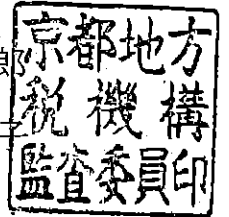 京都地方
税機構
監査委員印
郎